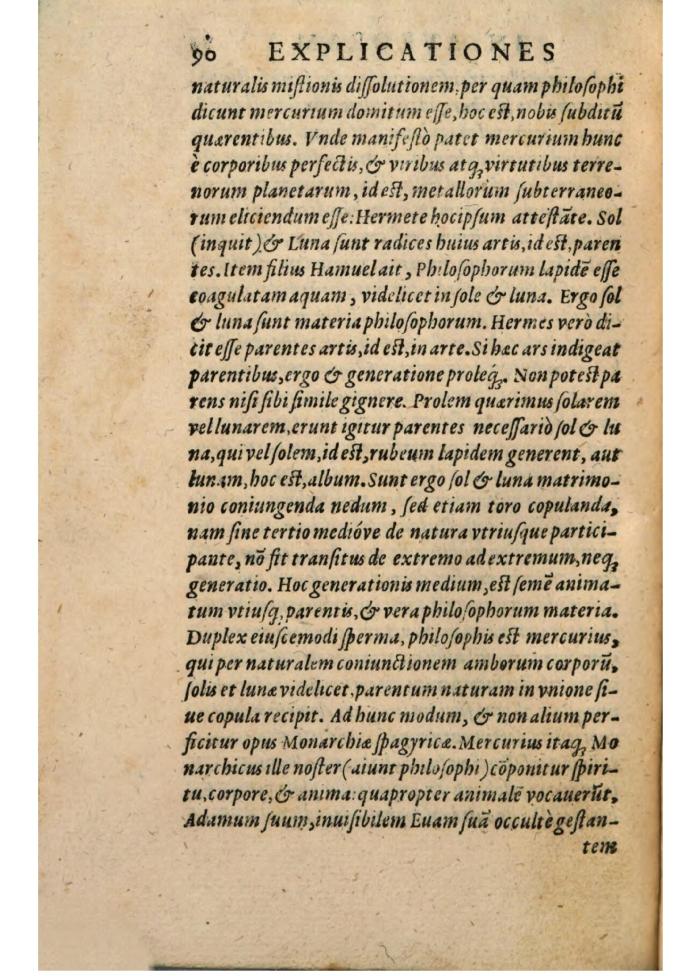 90 EXPLICATIONES
naturalis mistionis dissolutionem, per quam philosophi
dicunt mercurium domitum esse, hoc est, nobis subditū
quærentibus. Vnde manifestò patet mercurium hunc
è corporibus perfectis, & viribus atq; virtutibus terre-
norum planetarum, id est, metallorum subterraneo-
rum eliciendum esse: Hermete hocipsum attestāte. Sol
(inquit) & Luna sunt radices huius artis, id est, paren
tes. Item filius Hamuel ait, Philosophorum lapidē esse
coagulatam aquam, videlicet in sole & luna. Ergo sol
& luna sunt materia philosophorum. Hermes verò di-
cit esse parentes artis, id est, in arte. Si hæc ars indigeat
parentibus, ergo & generatione proleq́;. Non potest pa
rens nisi sibi simile gignere. Prolem quærimus solarem
vel lunarem, erunt igitur parentes necessariò sol & lu
na, qui vel solem, id est, rubeum lapidem generent, aut
lunam, hoc est, album. Sunt ergo sol & luna matrimo-
nio coniungenda nedum, sed etiam toro copulanda,
nam sine tertio medióve de natura vtriusque partici-
pante, nō fit transitus de extremo ad extremum, neq;
generatio. Hoc generationis medium, est semē anima-
tum vtiusq; parentis, & vera philosophorum materia.
Duplex eiuscemodi sperma, philosophis est mercurius,
qui per naturalem coniunctionem amborum corporū,
solis et lunæ videlicet, parentum naturam in vnione si-
ue copula recipit. Ad hunc modum, & non alium per-
ficitur opus Monarchiæ spagyricæ. Mercurius itaq; Mo
narchicus ille noster (aiunt philosophi) cōponitur spiri-
tu, corpore, & anima: quapropter animalē vocauerūt,
Adamum suum, inuisibilem Euam suā occultè gestan-
tem